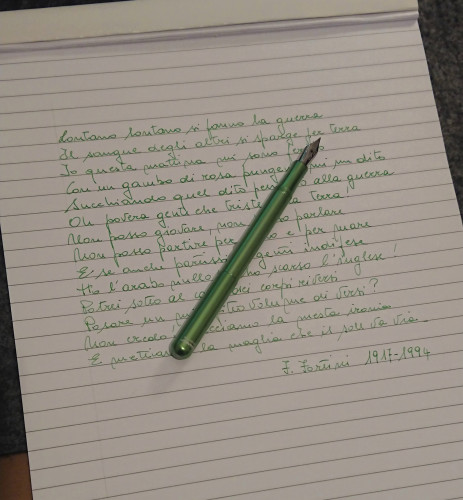 Lontano lontano si fanno la guerra
Il sangue degli altri si sparge per terra
Io questa mattina mi sono
Con un gambo di rosa pungendomi un dito
Succhiando quel dito alla guerra
Oh povera gente che triste la terra!
Non posso giovare, non parlare
Non posso partire per o per mare
E se anche partissi genti indifese
Ho l'arabo nullo scarso l'inglese!
Potrei sotto al dei corpi riversi
Posare un mio volume di versi?
Non credo, cciamo la mesta ironia
E mettiamo la maglia che il sole va via.
F. Fortini 1917-1994